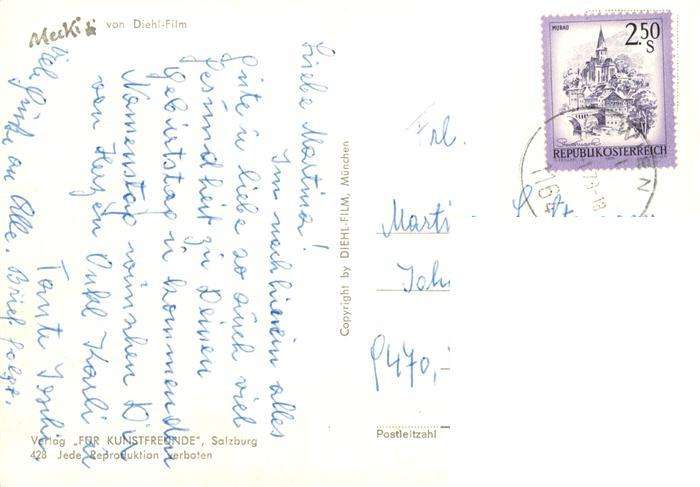 Mecki von Diehl-Film
Liebe Martina!
Im nachhinein alles
Gute u. liebe so auch viel
Gesundheit zu Deinen
Geburtstag u. kommenden
Namenstag wünschen Dir
von Herzen Onkl Karli u
Tante
Viele Grüße an Alle. Brief folgt.
Copyright by DIEHL-FILM, München
MURAU
2.50
S
REPUBLIK ÖSTERREICH
Frl.
Marti
Joh
9470,-
Postleitzahl
Verlag „FÜR KUNSTFREUNDE", Salzburg
428 Jede Reproduktion verboten